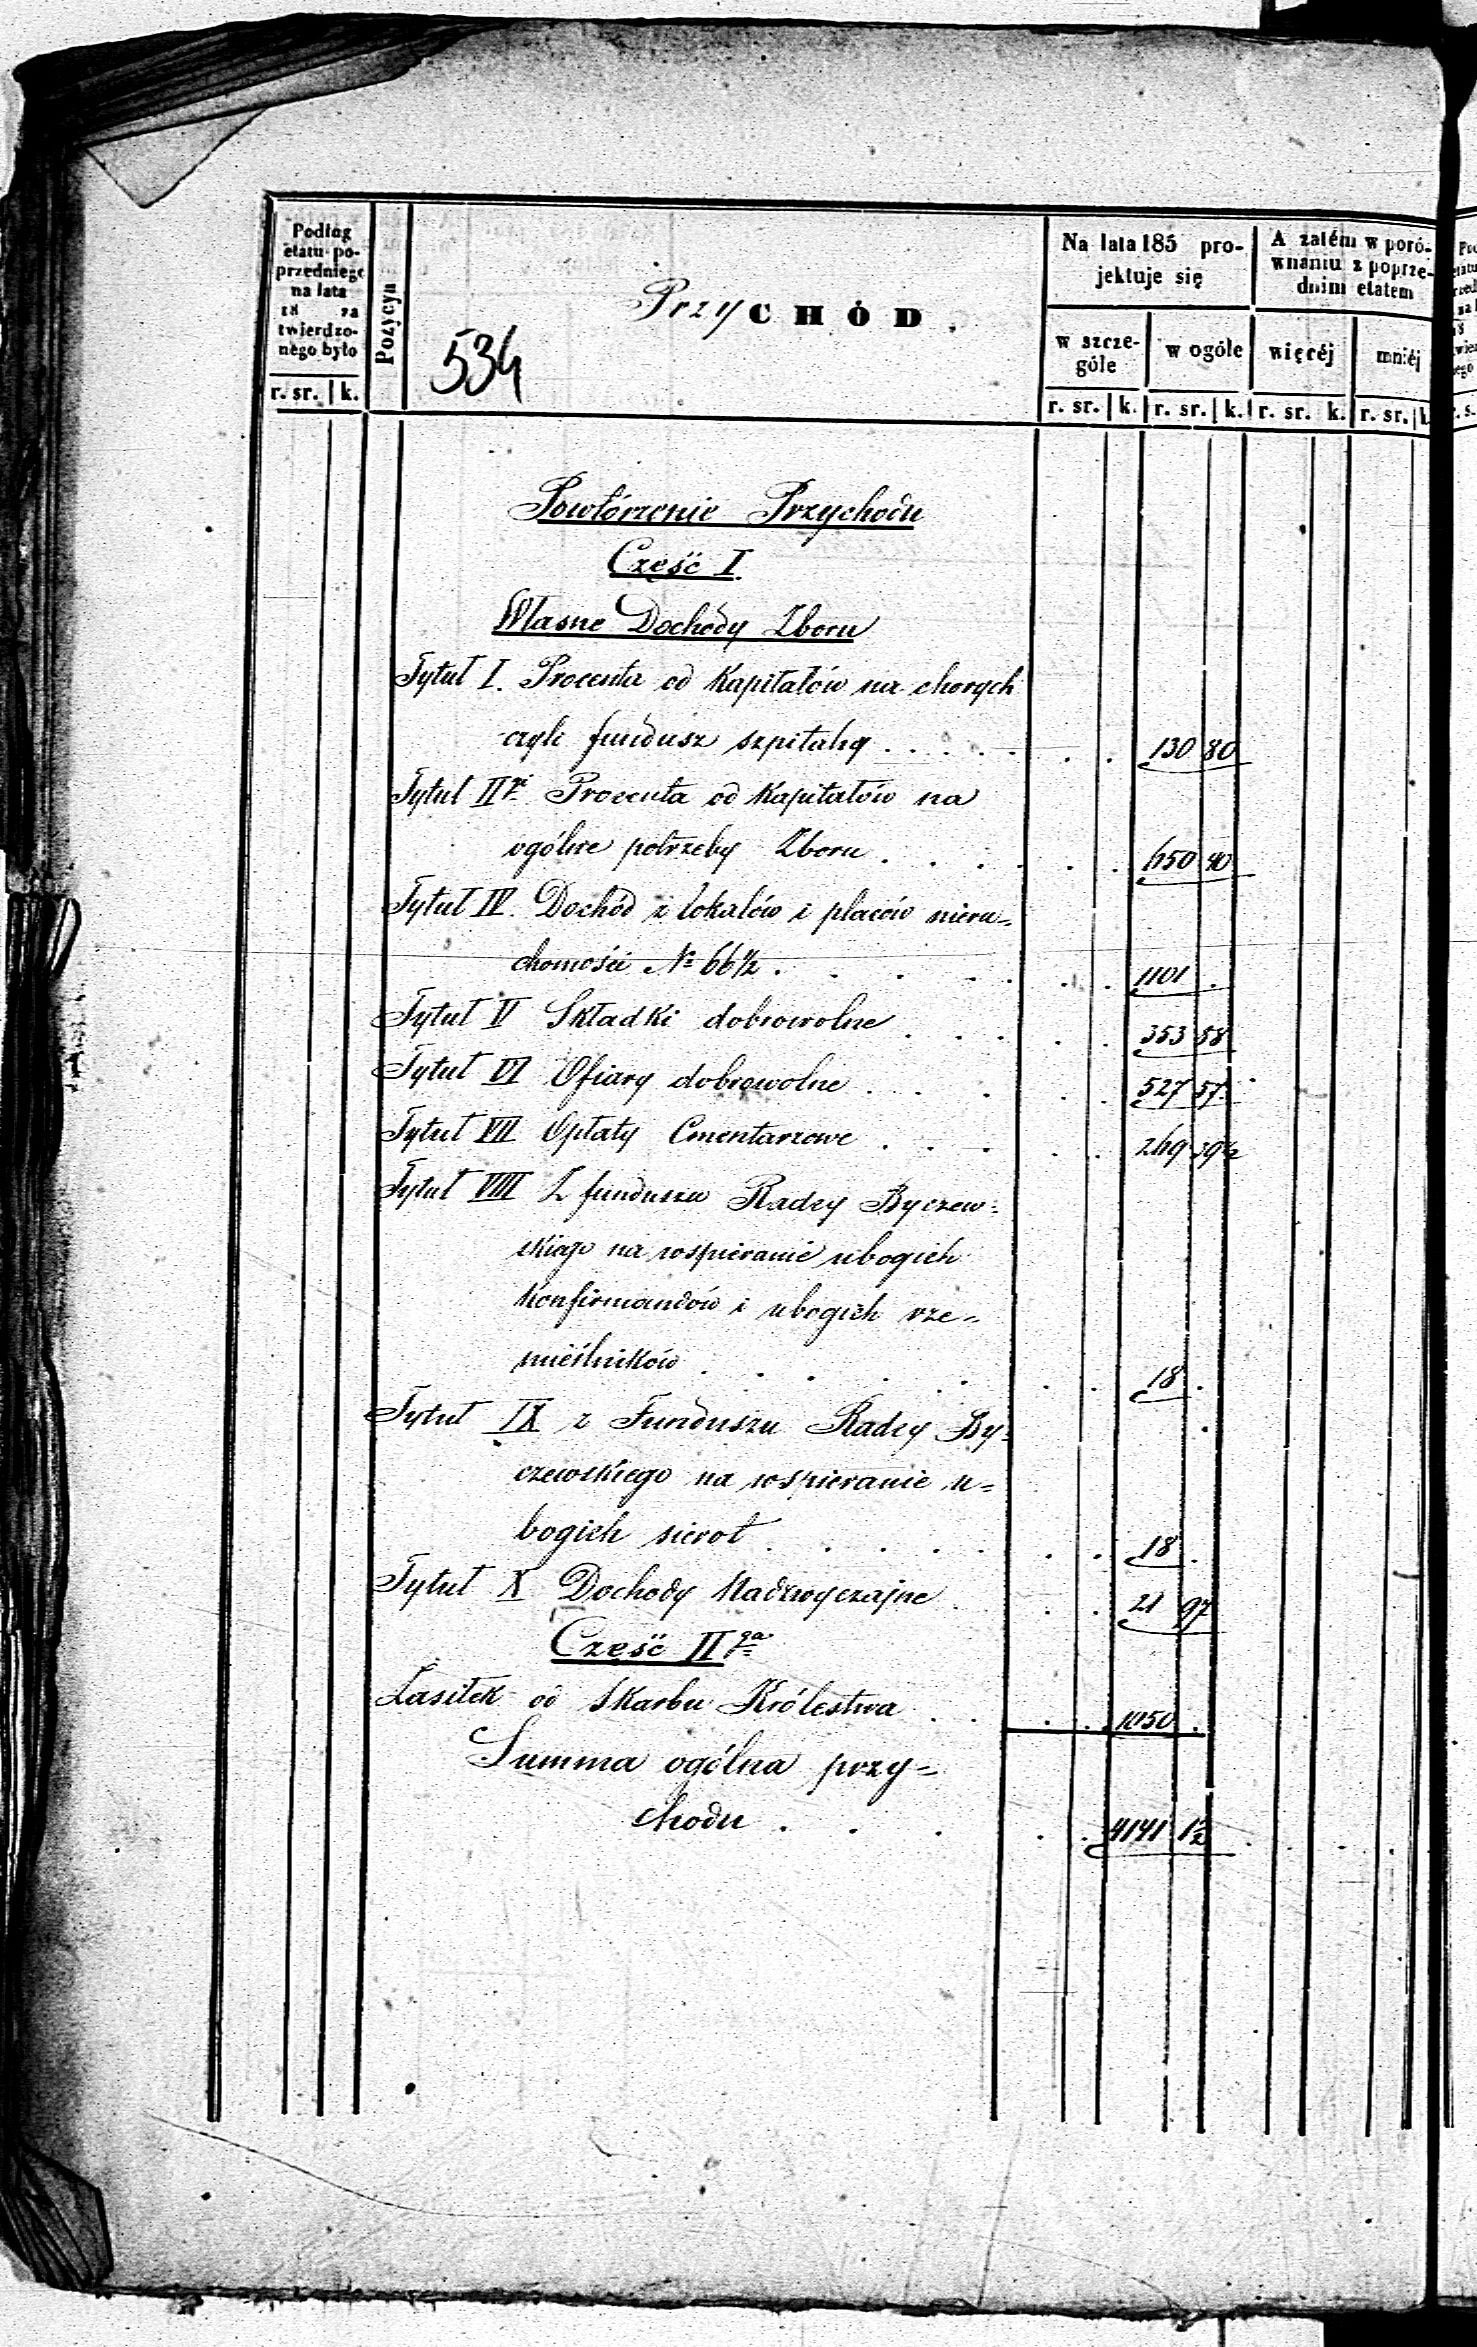 Podług
etatu po-
przedniego
na lata
18 za
twierdzo-
nego było
r. sr. k.
Pozycya
534
PrzyCHÓD.
Na lata 185 pro-
jektuje się
w szcze-
góle
r. sr. k.
w ogóle
r. sr. k.
A zatém w poró-
wnaniu z poprze-
dnim etatem
więcéj
r. sr. k.
mniéj
r. sr. k.
Powtórzenie Przychodu
Część I
Własne Dochody Zboru
Tytuł I. Procenta od Kapitałów na chorych
czyli fundusz szpitalny . . . . 130 80
Tytuł II gi Procenta od Kapitałów na
ogólne potrzeby Zboru . . . . 650 90
Tytuł IV. Dochód z lokalów i placów nieru=
chomości № 66½ . . . . 1101 .
Tytuł V Składki dobrowolne . . . . 353 58
Tytuł VI Ofiary dobrowolne . . . . 527 57
Tytuł VII Opłaty Cmentarzowe . . . . 269 19½
Tytuł VIII Z funduszu Radcy Byczew=
skiego na wspieranie ubogich
Konfirmandów i ubogich rze=
mieślników . . . . 18 .
Tytuł IX z Funduszu Radcy By=
czewskiego na wspieranie u=
bogich sierot . . . . 18 .
Tytuł X Dochody Nadzwyczajne . . . 21 97
Część II ga
Zasiłek od Skarbu Królestwa . . . . 1050 .
Summa ogólna przy=
chodu . . . . 4141 1½